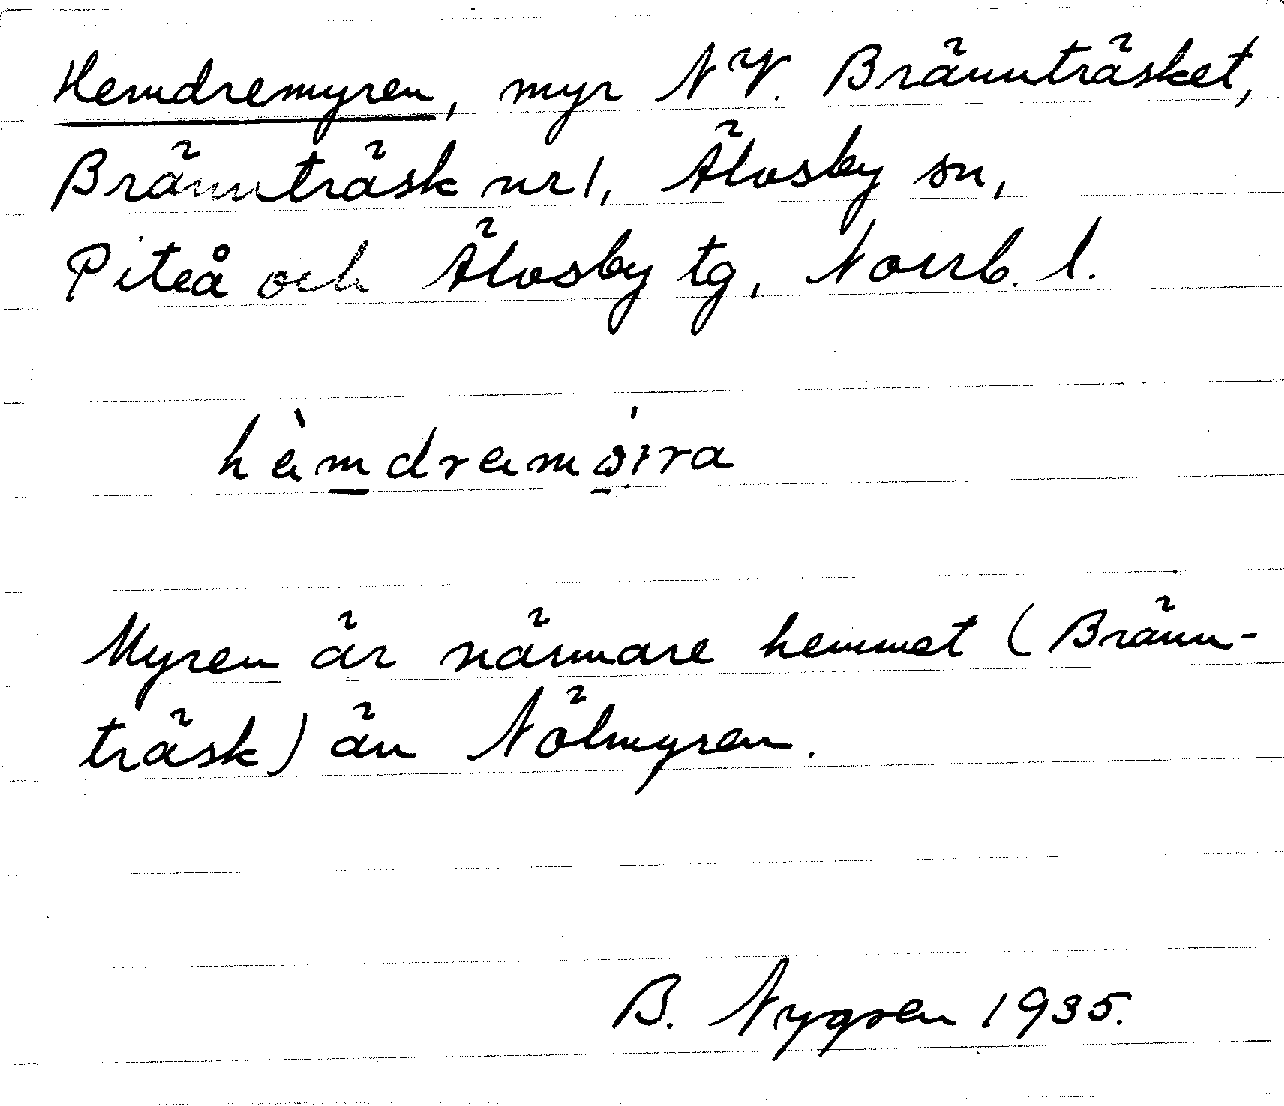 Hemdremyren, myr NV. Brännträsket,
Brännträsk nr 1, Älvsby sn,
Piteå och Älvsby tg, Norrb. l.
hèmdremö́ɪra
Myren är närmare hemmet (Bränn-
träsk) än Nölmyren.
B. Nygren 1935.